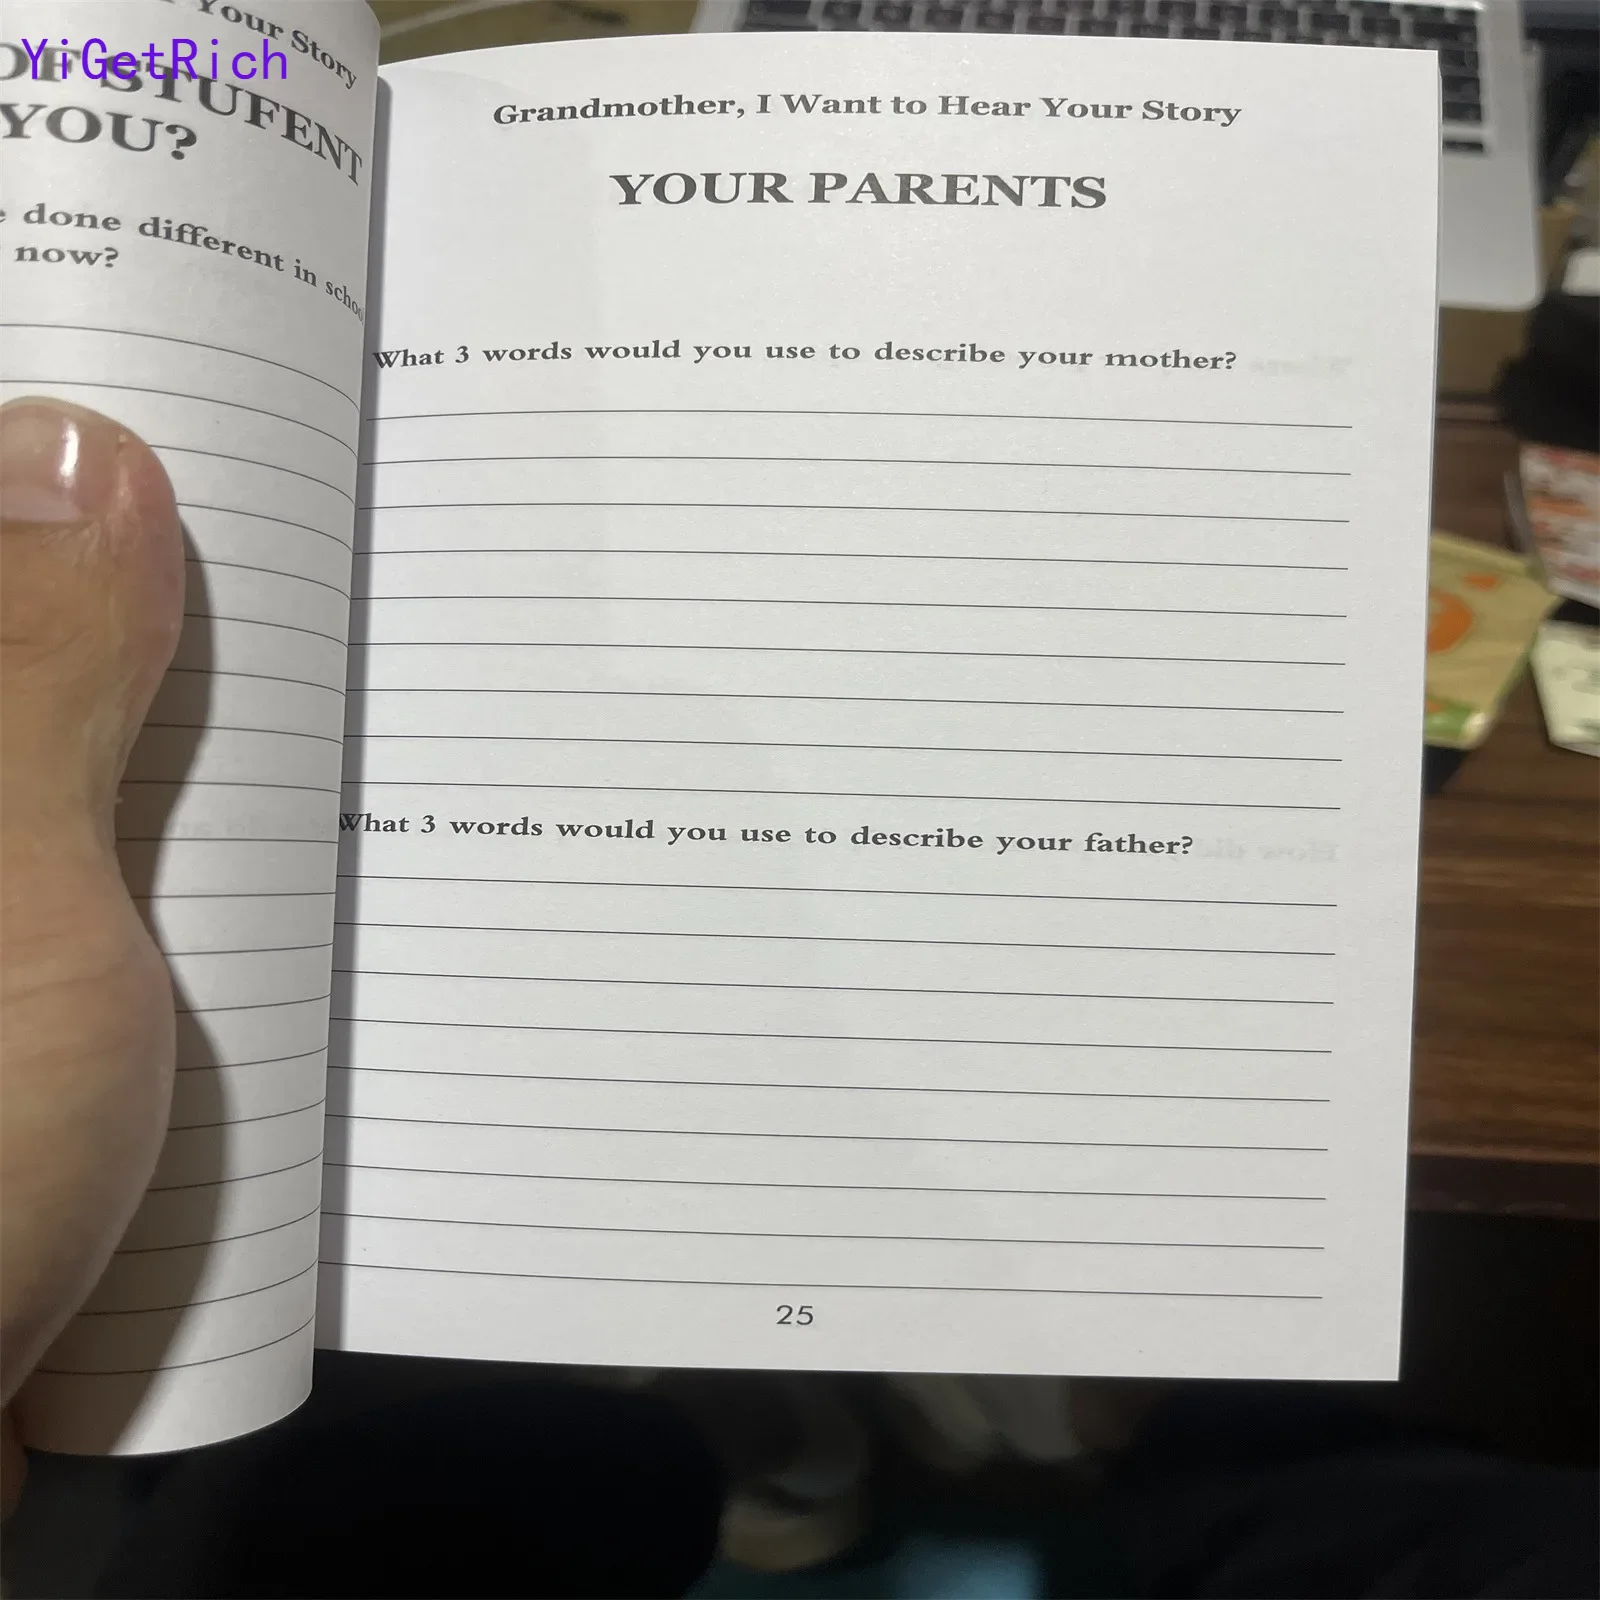 YiGetRich
Your Story
OF STUFENT
YOU?
done different in schoo
now?
Grandmother, I Want to Hear Your Story
YOUR PARENTS
What 3 words would you use to describe your mother?
What 3 words would you use to describe your father?
25